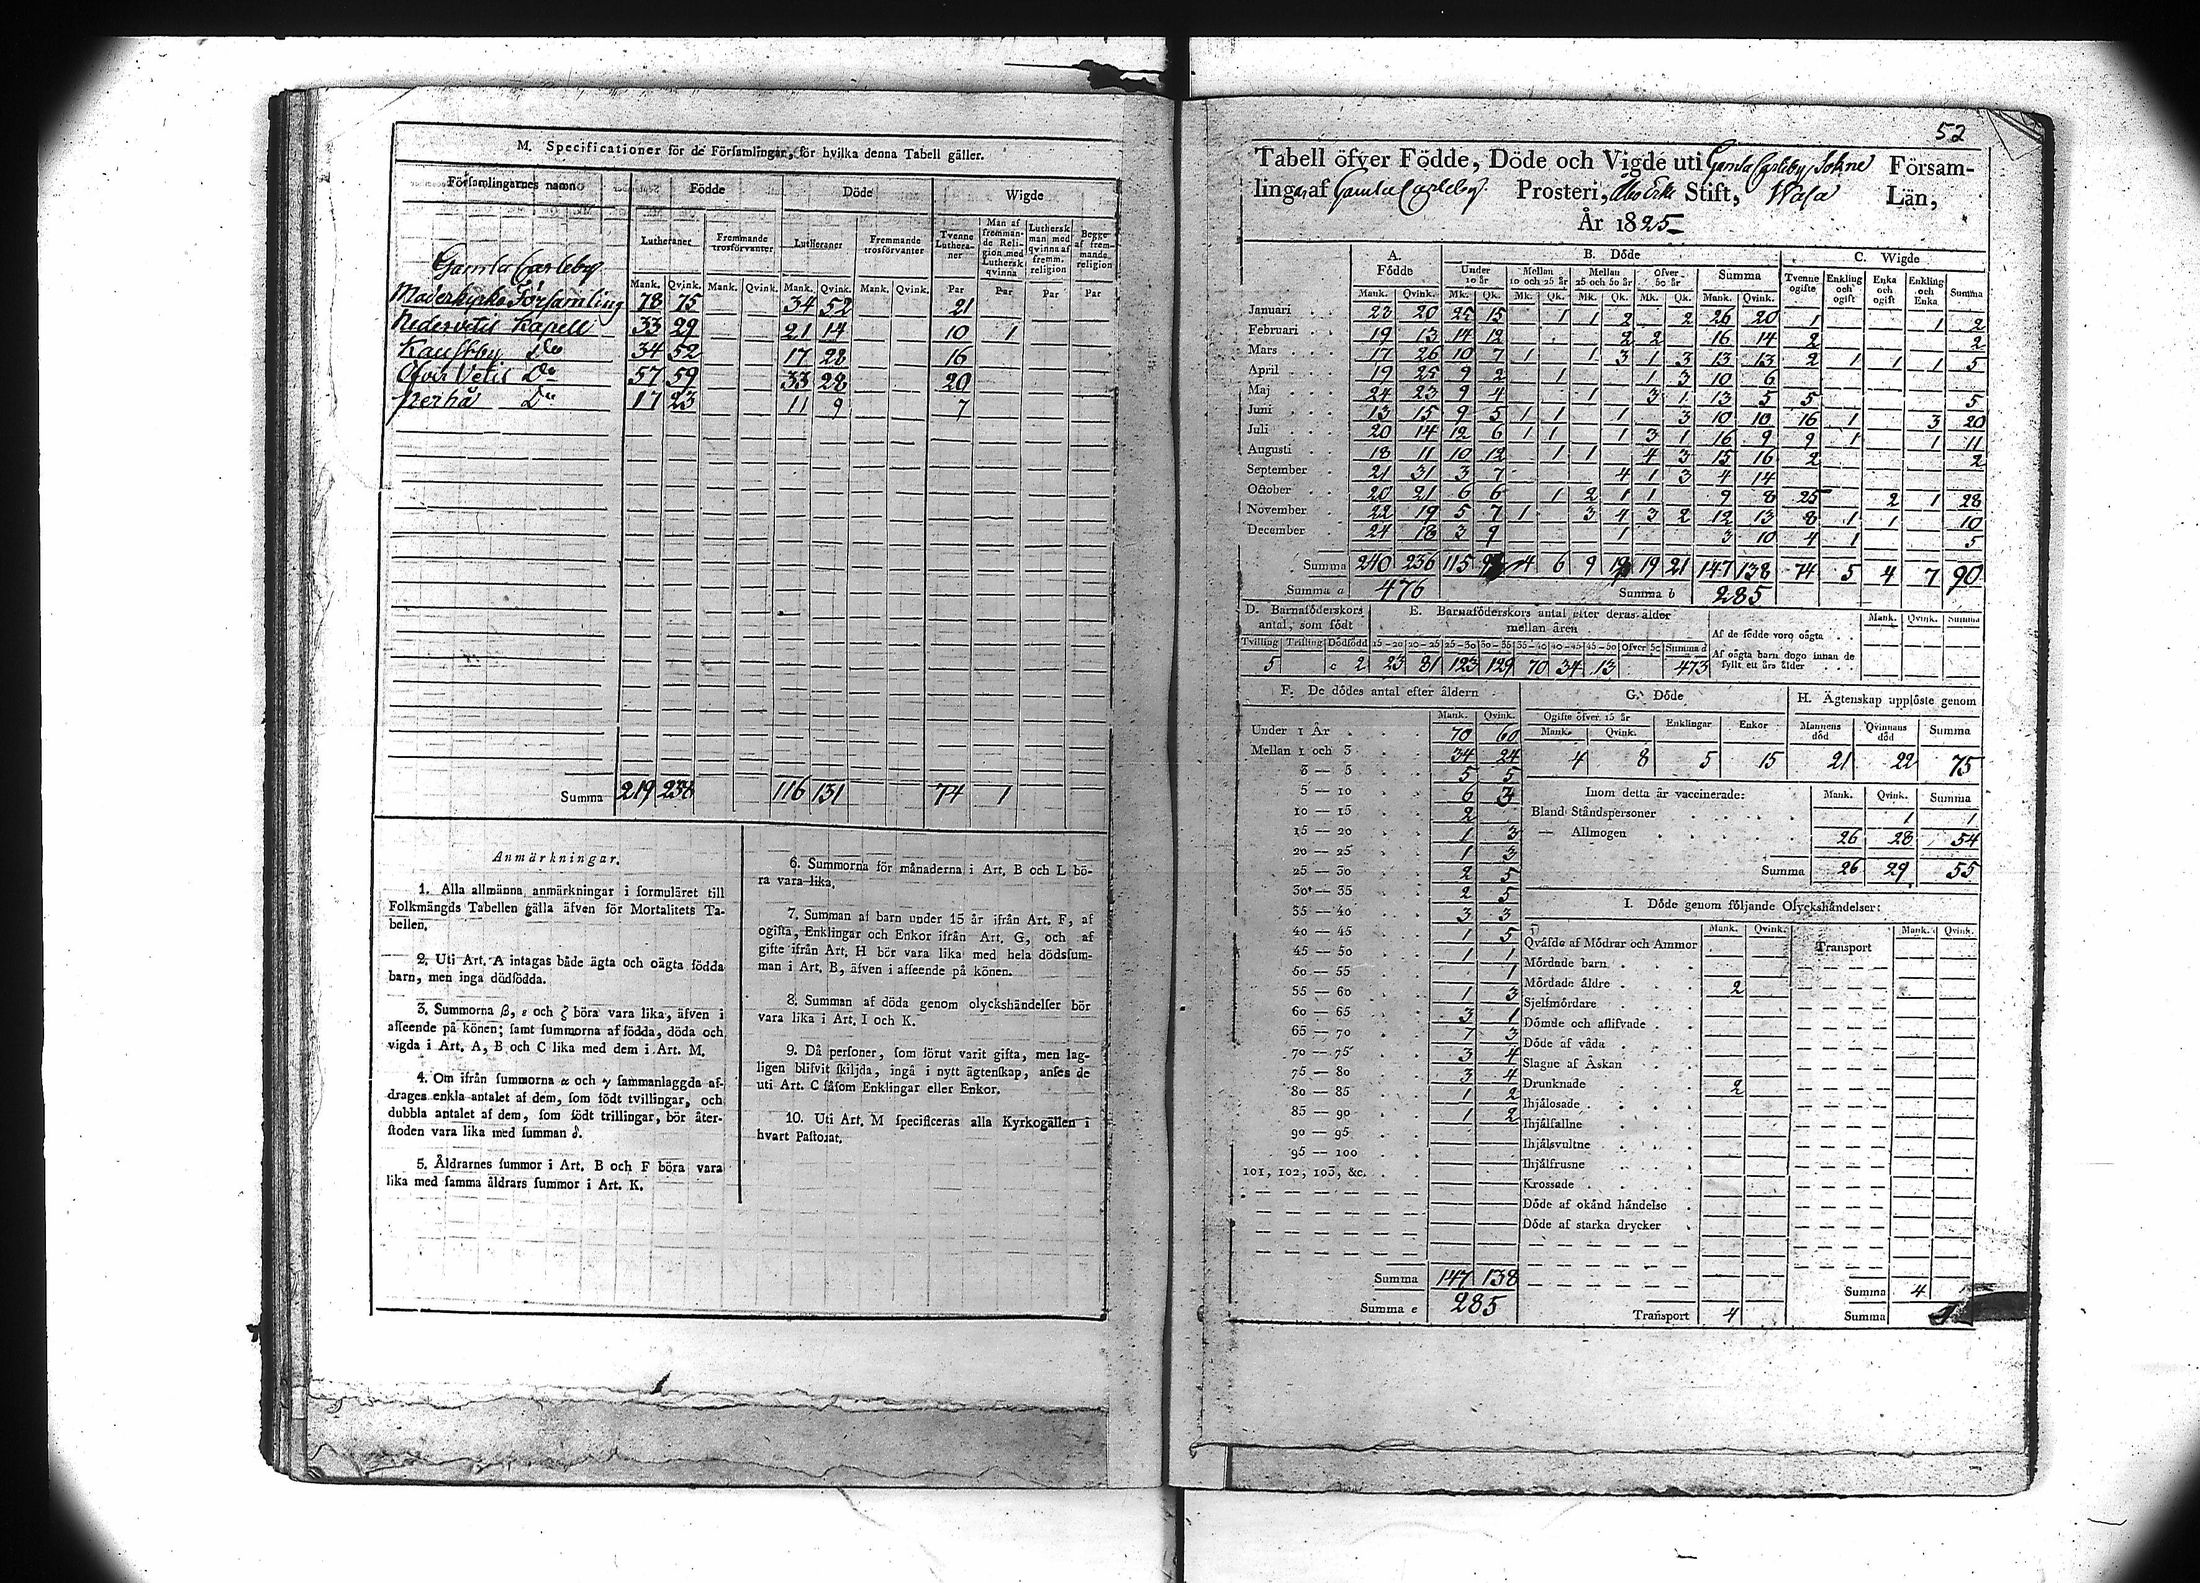 M. Specificationer för de Församlingar, för hvilka denna Tabell gäller.
Församlingarnes namn Födde Döde Wigde
Lutheraner Fremmande trosförvanter Lutheraner Fremmande trosförvanter Tvenne Lutheraner Man af fremmande Religion med Luthersk qvinna Luthersk man med qvinna af fremm. religion Begge af fremmande religion
Mank. Qvink. Mank. Qvink. Mank. Qvink. Mank. Qvink. Par Par Par Par
Gamla Carleby
Moderkyrko Församling 78 75 34 52 21
Nedervetil Kapell 33 29 21 14 10 1
Kaustby Do 34 52 17 28 16
Öfver Vetil Do 57 59 33 28 20
Perho Do 17 23 11 9 7
Summa 219 238 116 131 74 1
Anmärkningar.
1. Alla allmänna anmärkningar i formuläret till
Folkmängds Tabellen gälla äfven för Mortalitets Ta-
bellen.
2. Uti Art. A intagas både ägta och oägta födda
barn, men inga dödfödda.
3. Summorna β, ε och ζ böra vara lika, äfven i
afseende på könen; samt summorna af födda, döda och
vigda i Art. A, B och C lika med dem i Art. M.
4. Om ifrån summorna α och γ sammanlaggda af-
drages enkla antalet af dem, som födt tvillingar, och
dubbla antalet af dem, som födt trillingar, bör åter-
stoden vara lika med summan δ.
5. Åldrarnes summor i Art. B och F böra vara
lika med samma åldrars summor i Art. K.
6. Summorna för månaderna i Art. B och L bö-
ra vara lika.
7. Summan af barn under 15 år ifrån Art. F, af
ogifta, Enklingar och Enkor ifrån Art. G, och af
gifte ifrån Art. H bör vara lika med hela dödssum-
man i Art. B, äfven i afseende på könen.
8. Summan af döda genom olyckshändelser bör
vara lika i Art. I och K.
9. Då personer, som förut varit gifta, men lag-
ligen blifvit skiljda, ingå i nytt ägtenskap, anses de
uti Art. C såsom Enklingar eller Enkor.
10. Uti Art. M specificeras alla Kyrkogällen i
hvart Pastorat.
52
Tabell öfver Födde, Döde och Vigde uti Gamla Carleby Sokne Försam-
lingar af Gamla Carleby Prosteri, Åbo Erke Stift, Wasa Län,
År 1825
A. Födde B. Döde C. Wigde
Under 10 år Mellan 10 och 25 år Mellan 25 och 50 år Öfver 50 år Summa Tvenne ogifte Enkling och ogift Enka och ogift Enkling och Enka Summa
Mank. Qvink. Mk. Qk. Mk. Qk. Mk. Qk. Mk. Qk. Mank. Qvink.
Januari 23 20 25 15 1 1 2 2 26 20 1 1 2
Februari 19 13 14 12 2 2 16 14 2 2
Mars 17 26 10 7 1 1 3 1 3 13 13 2 1 1 1 5
April 19 25 9 2 1 1 3 10 6
Maj 24 23 9 4 1 3 1 13 5 5 5
Juni 13 15 9 5 1 1 1 3 10 10 16 1 3 20
Juli 20 14 12 6 1 1 1 3 1 16 9 9 1 1 11
Augusti 18 11 10 12 1 1 4 3 15 16 2 2
September 21 31 3 7 4 1 3 4 14
October 20 21 6 6 1 2 1 1 9 8 25 2 1 28
November 22 19 5 7 1 3 4 3 2 12 13 8 1 1 10
December 24 18 3 9 1 3 10 4 1 5
Summa 240 236 115 4 6 9 19 21 147 138 74 5 4 7 90
Summa a 476 Summa b 285
D. Barnaföderskors antal, som födt
E. Barnaföderskors antal efter deras ålder mellan åren
Mank. Qvink. Summa
Af de födde voro oägta
Af oägta barn dogo innan de fyllt ett års ålder
Tvilling Trilling Dödfödd 15-20 20-25 25-30 30-35 35-40 40-45 45-50 Öfver 50 Summa d
5 c 2 23 81 123 129 70 34 13 473
F. De dödes antal efter åldern
Mank. Qvink.
Under 1 År 70 60
Mellan 1 och 3 34 24
3 — 5 5 5
5 — 10 6
10 — 15 2
15 — 20 1 3
20 — 25 1 3
25 — 30 2 5
30 — 35 2 5
35 — 40 3 3
40 — 45 1 5
45 — 50 1 1
50 — 55 1
55 — 60 1 3
60 — 65 3 1
65 — 70 7 3
70 — 75 3 4
75 — 80 3 4
80 — 85 1 2
85 — 90 1 2
90 — 95
95 — 100
101, 102, 103, &c.
Summa 147 138
Summa e 285
G. Döde
Ogifte öfver 15 år Enklingar Enkor
Mank. Qvink.
4 8 5 15
H. Ägtenskap upplöste genom
Mannens död Qvinnans död Summa
21 22 75
Inom detta år vaccinerade: Mank. Qvink. Summa
Bland Ståndspersoner 1 1
— Allmogen 26 28 54
Summa 26 29 55
I. Döde genom följande Olyckshändelser:
Mank. Qvink. Transport Mank. Qvink.
Qväfde af Mödrar och Ammor
Mördade barn
Mördade äldre 2
Sjelfmördare
Dömde och aflifvade
Döde af våda
Slagne af Åskan
Drunknade 2
Ihjälosade
Ihjälfallne
Ihjälsvultne
Ihjälfrusne
Krossade
Döde af okänd händelse
Döde af starka drycker
Summa 4
Transport 4 Summa